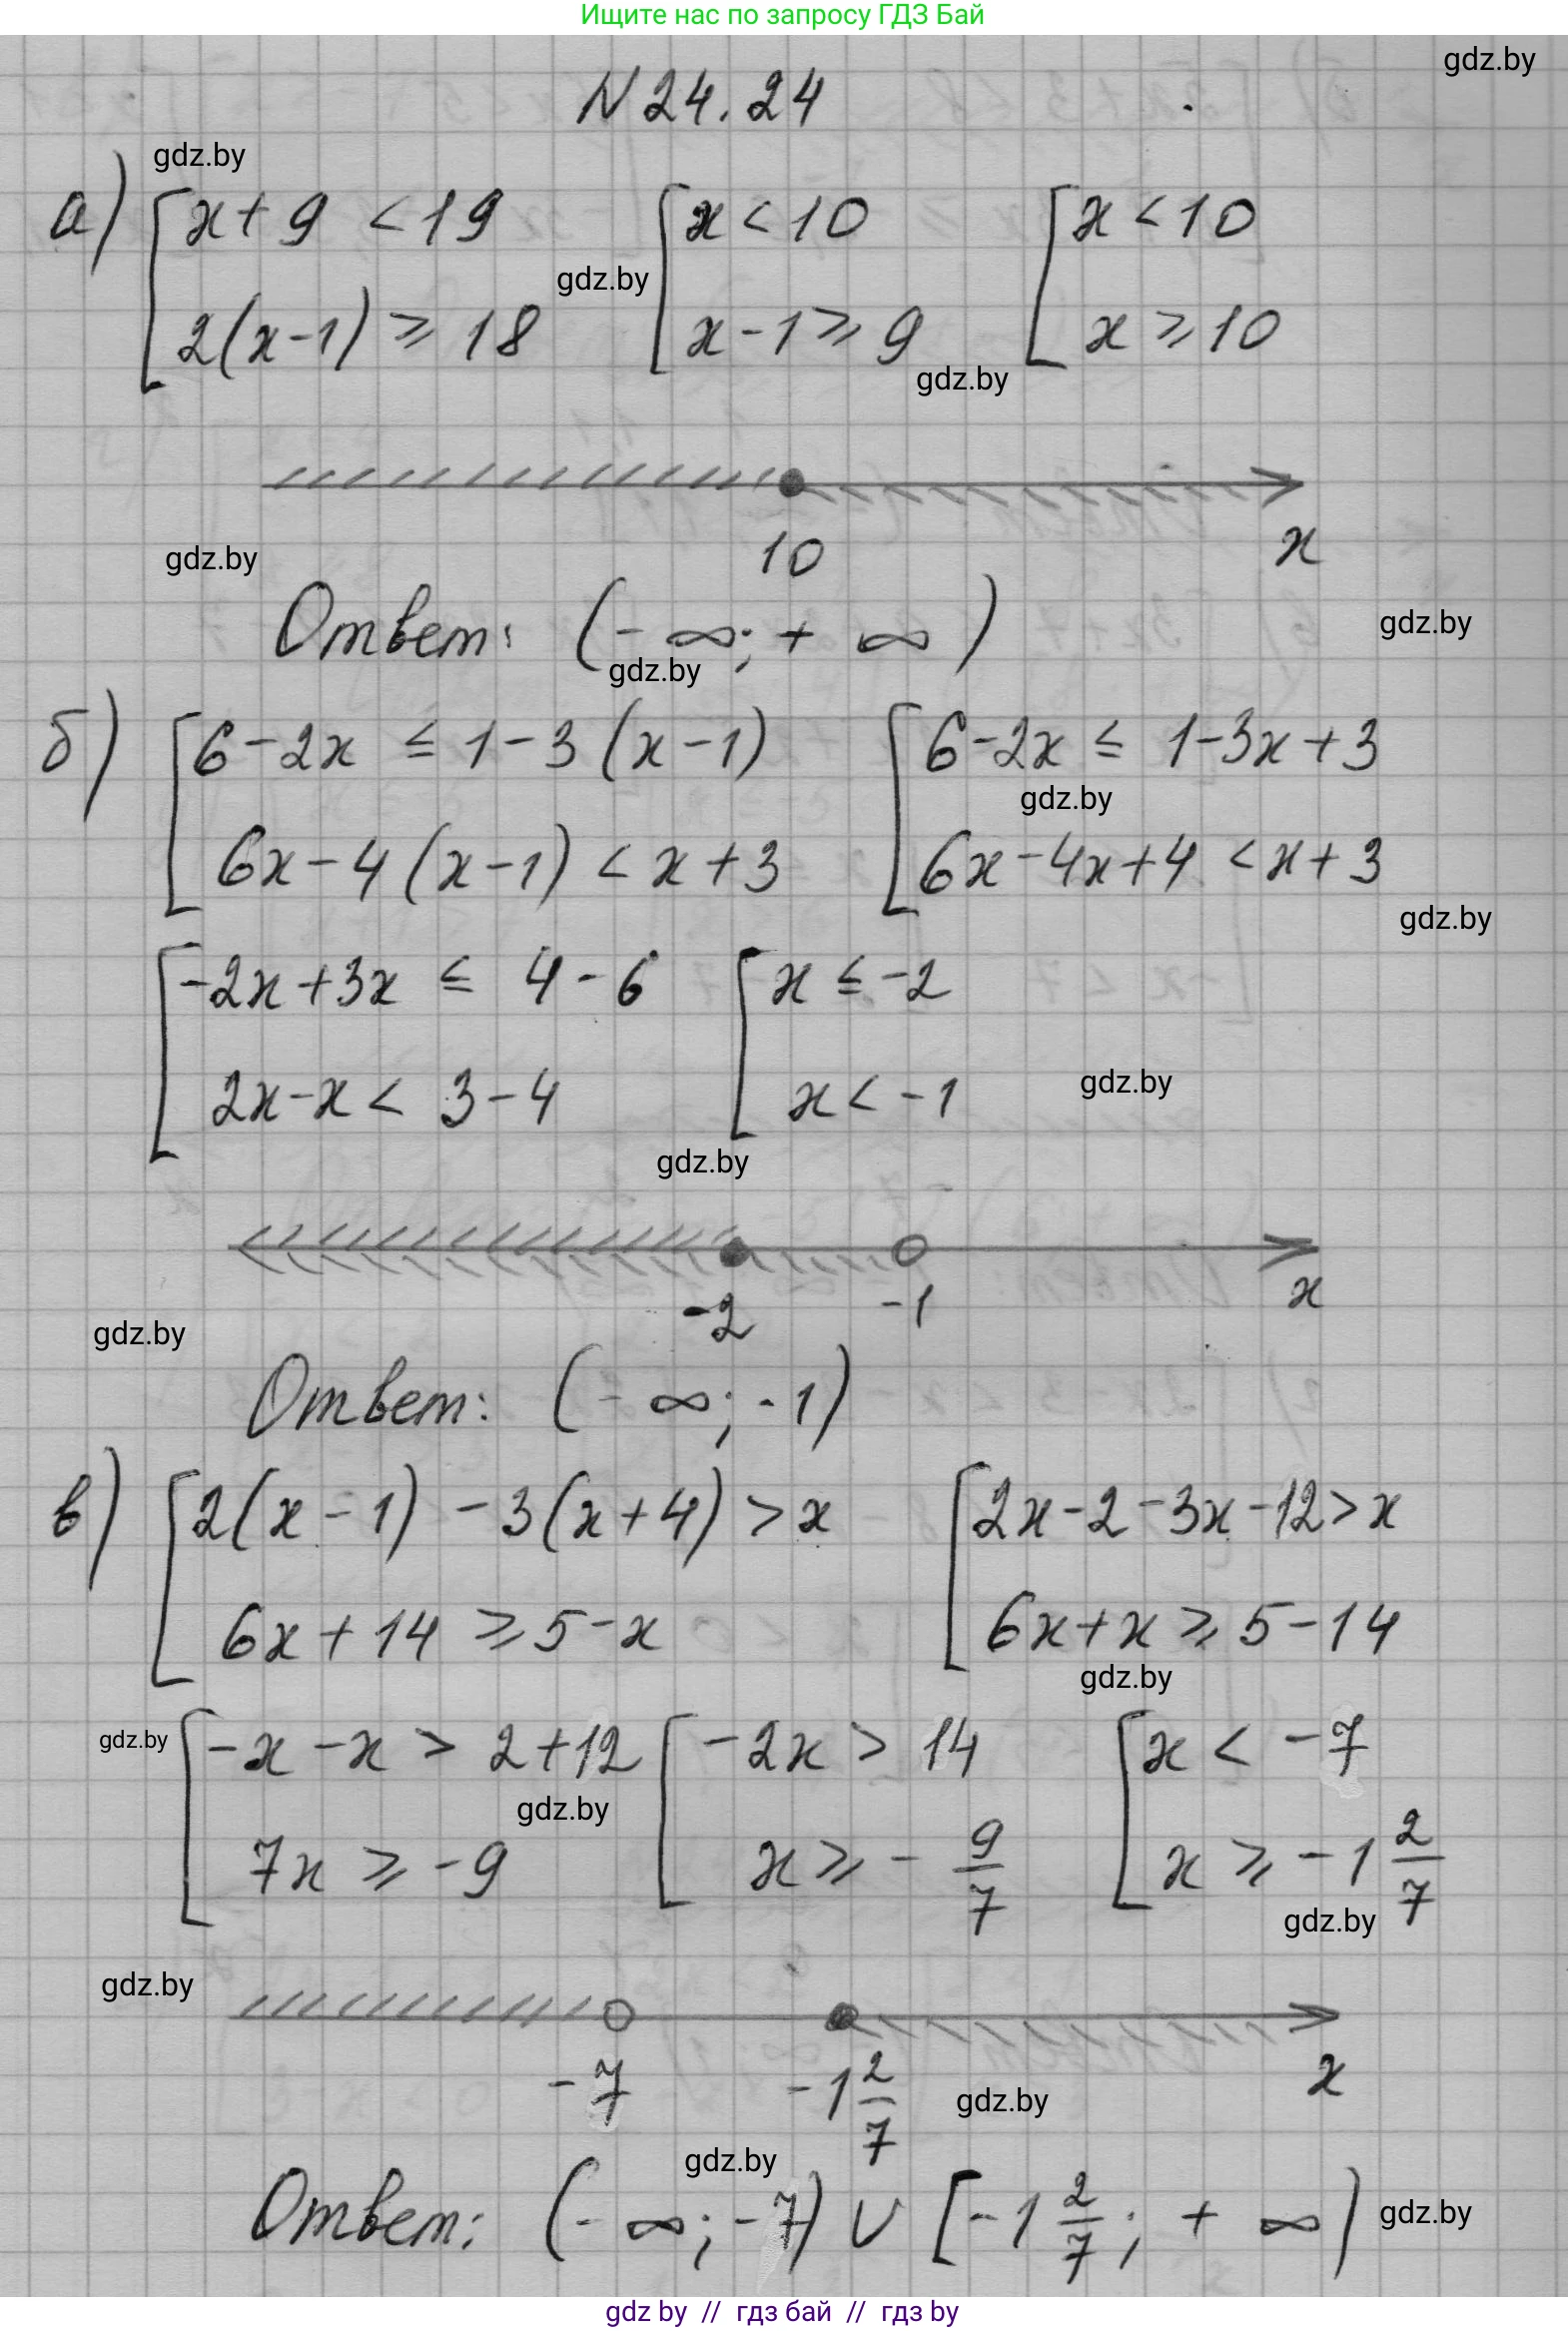 Ищите нас по запросу ГДЗ Бай
gdz.by
N 24.24
gdz.by
а) [x+9 <19 [x<10 [x<10
gdz.by
2(x-1) ⩾ 18 x-1⩾9 x⩾10
gdz.by
10 x
gdz.by
Ответ: (-∞;+∞)
gdz.by
gdz.by
б) [6-2x ≤ 1-3(x-1) [6-2x ≤ 1-3x+3
gdz.by
6x-4(x-1)<x+3 6x-4x+4<x+3
gdz.by
[-2x+3x ≤ 4-6 [x≤-2
2x-x< 3-4 x<-1
gdz.by
gdz.by
-2 -1 x
gdz.by
Ответ: (-∞;-1)
в) [2(x-1)-3(x+4)>x [2x-2-3x-12>x
6x+14⩾5-x 6x+x⩾5-14
gdz.by
gdz.by [-x-x> 2+12 [-2x> 14 [x< -7
gdz.by
7x⩾-9 x⩾-9/7 x⩾-1 2/7
gdz.by
gdz.by
-7 -1 2/7 x
gdz.by
gdz.by
Ответ: (-∞;-7) ∪ [-1 2/7; +∞) gdz.by
gdz by // гдз бай // гдз by